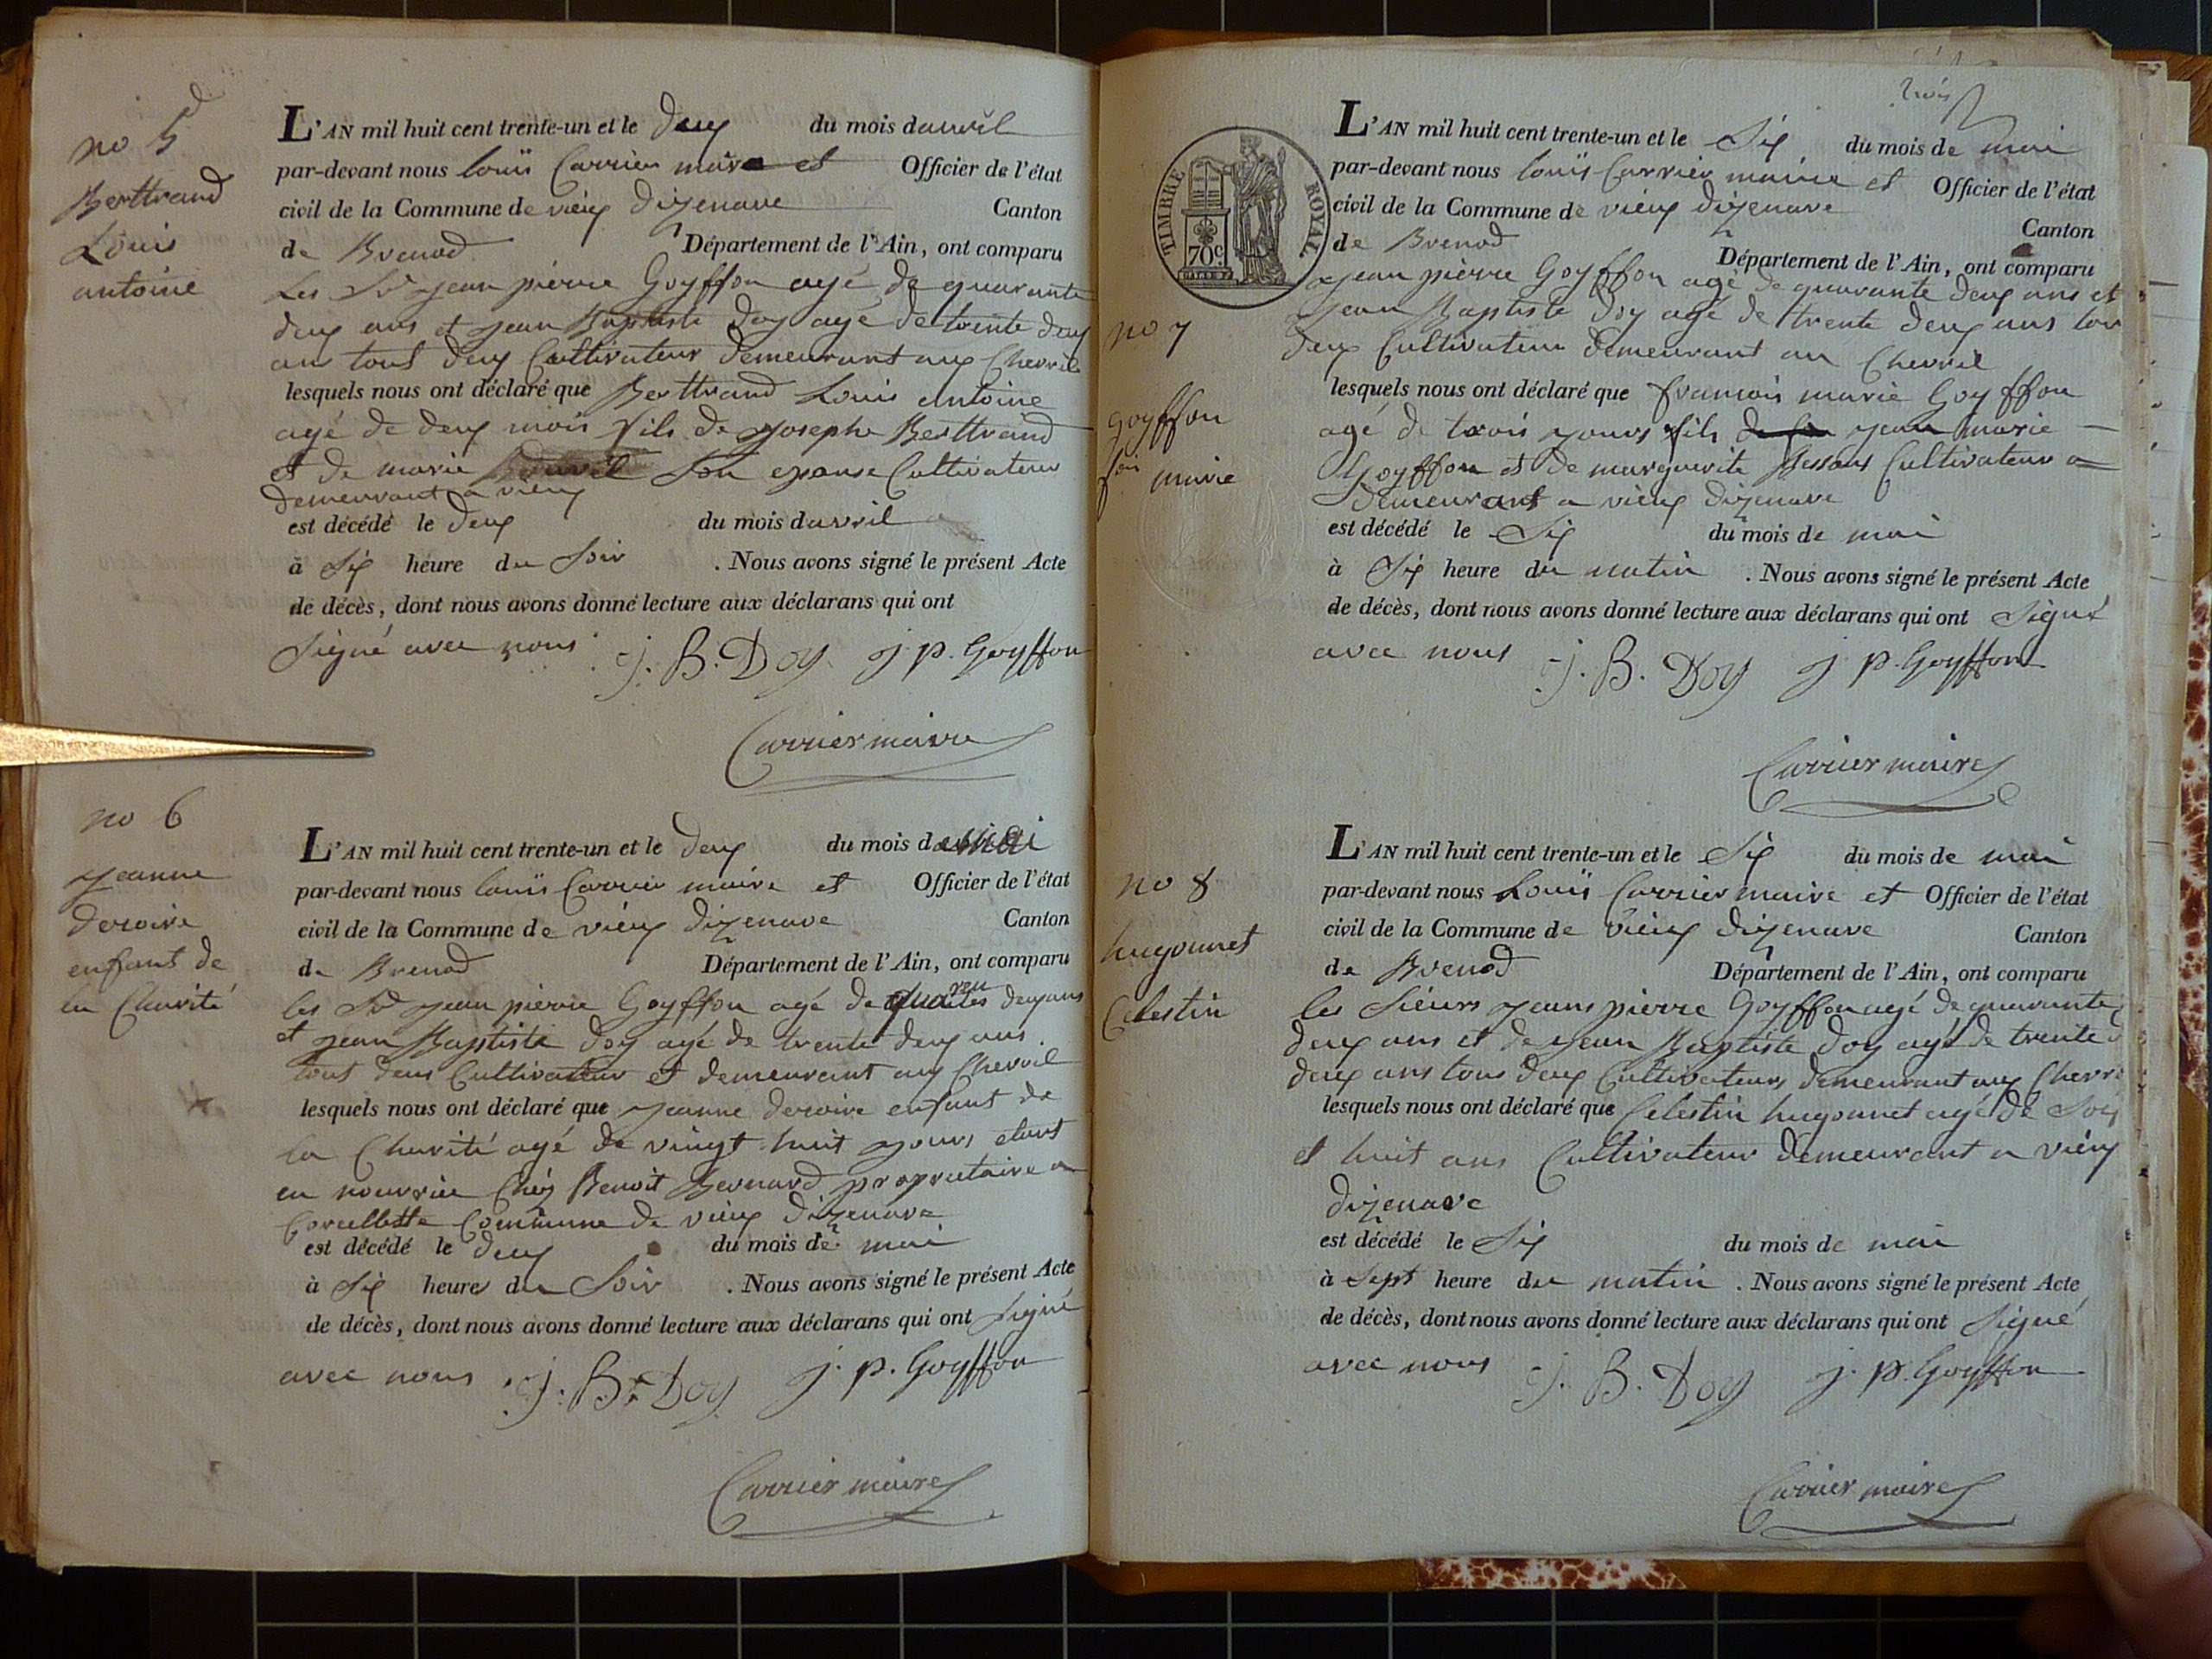 no 5
Berttrand
Louis
antoine
L'AN mil huit cent trente-un et le deux du mois davril
par-devant nous louis Carrier maire et Officier de l'état
civil de la Commune de vieux dizenave Canton
de Brenod Département de l'Ain, ont comparu
Les Sr jean pierre Goyffon agé de quarante
deux ans et jean Baptiste Doy agé de trente deux
ans tout deux Cultivateur demeurant aux Chevril
lesquels nous ont déclaré que Berttrand Louis antoine
agé de deux mois fils de joseph Berttrand
et de marie son epouse Cultivateur
demeurant a vieux
est décédé le deux du mois davril
à Six heure du Soir . Nous avons signé le présent Acte
de décès, dont nous avons donné lecture aux déclarans qui ont
Signé avec nous J. B. Doy j p. Goyffon
Carrier maire
no 6
jeanne
deroire
enfant de
la Charité
L'AN mil huit cent trente-un et le deux du mois de mai
par-devant nous louis Carrier maire et Officier de l'état
civil de la Commune de vieux dizenave Canton
de Brenod Département de l'Ain, ont comparu
les Sr jean pierre Goyffon agé de deux ans
et jean Baptiste doy agé de trente deux ans
tout deux Cultivateur et demeurant aux Chevril
lesquels nous ont déclaré que jeanne deroire enfant de
la Charité agé de vingt huit jours etant
en nourrice Chez Benoit Bernard proprietaire a
Corcellette Commune de vieux dizenave
est décédé le deux du mois de mai
à Six heures du Soir . Nous avons signé le présent Acte
de décès, dont nous avons donné lecture aux déclarans qui ont Signé
avec nous J. B. Doy j. p. Goyffon
Carrier maire
trois
TIMBRE ROYAL
70c
L'AN mil huit cent trente-un et le Six du mois de mai
par-devant nous louis Carrier maire et Officier de l'état
civil de la Commune de vieux dizenave Canton
de Brenod Département de l'Ain, ont comparu
no 7
goyffon
marie
jean pierre Goyffon agé de quarante deux ans et
jean Baptiste doy agé de trente deux ans tou
deux Cultivateur demeurant au Chevril
lesquels nous ont déclaré que francois marie Goyffon
agé de trois jours fils jean marie
Goyffon et de marguerite Cultivateur a
demeurant a vieux dizenave
est décédé le Six du mois de mai
à Six heure du matin . Nous avons signé le présent Acte
de décès, dont nous avons donné lecture aux déclarans qui ont Signé
avec nous J. B. Doy j p. Goyffon
Carrier maire
no 8
hugonnet
Celestin
L'AN mil huit cent trente-un et le Six du mois de mai
par-devant nous Louis Carrier maire et Officier de l'état
civil de la Commune de vieux dizenave Canton
de Brenod Département de l'Ain, ont comparu
les Sieurs jean pierre Goyffon agé de quarante
deux ans et de jean Baptiste doy agé de trente
deux ans tous deux Cultivateurs demeurant aux Chevri
lesquels nous ont déclaré que Celestin hugonnet agé de
et huit ans Cultivateur demeurant a vieux
dizenave
est décédé le Six du mois de mai
à Sept heure du matin . Nous avons signé le présent Acte
de décès, dont nous avons donné lecture aux déclarans qui ont Signé
avec nous J. B. Doy j. p. Goyffon
Carrier maire